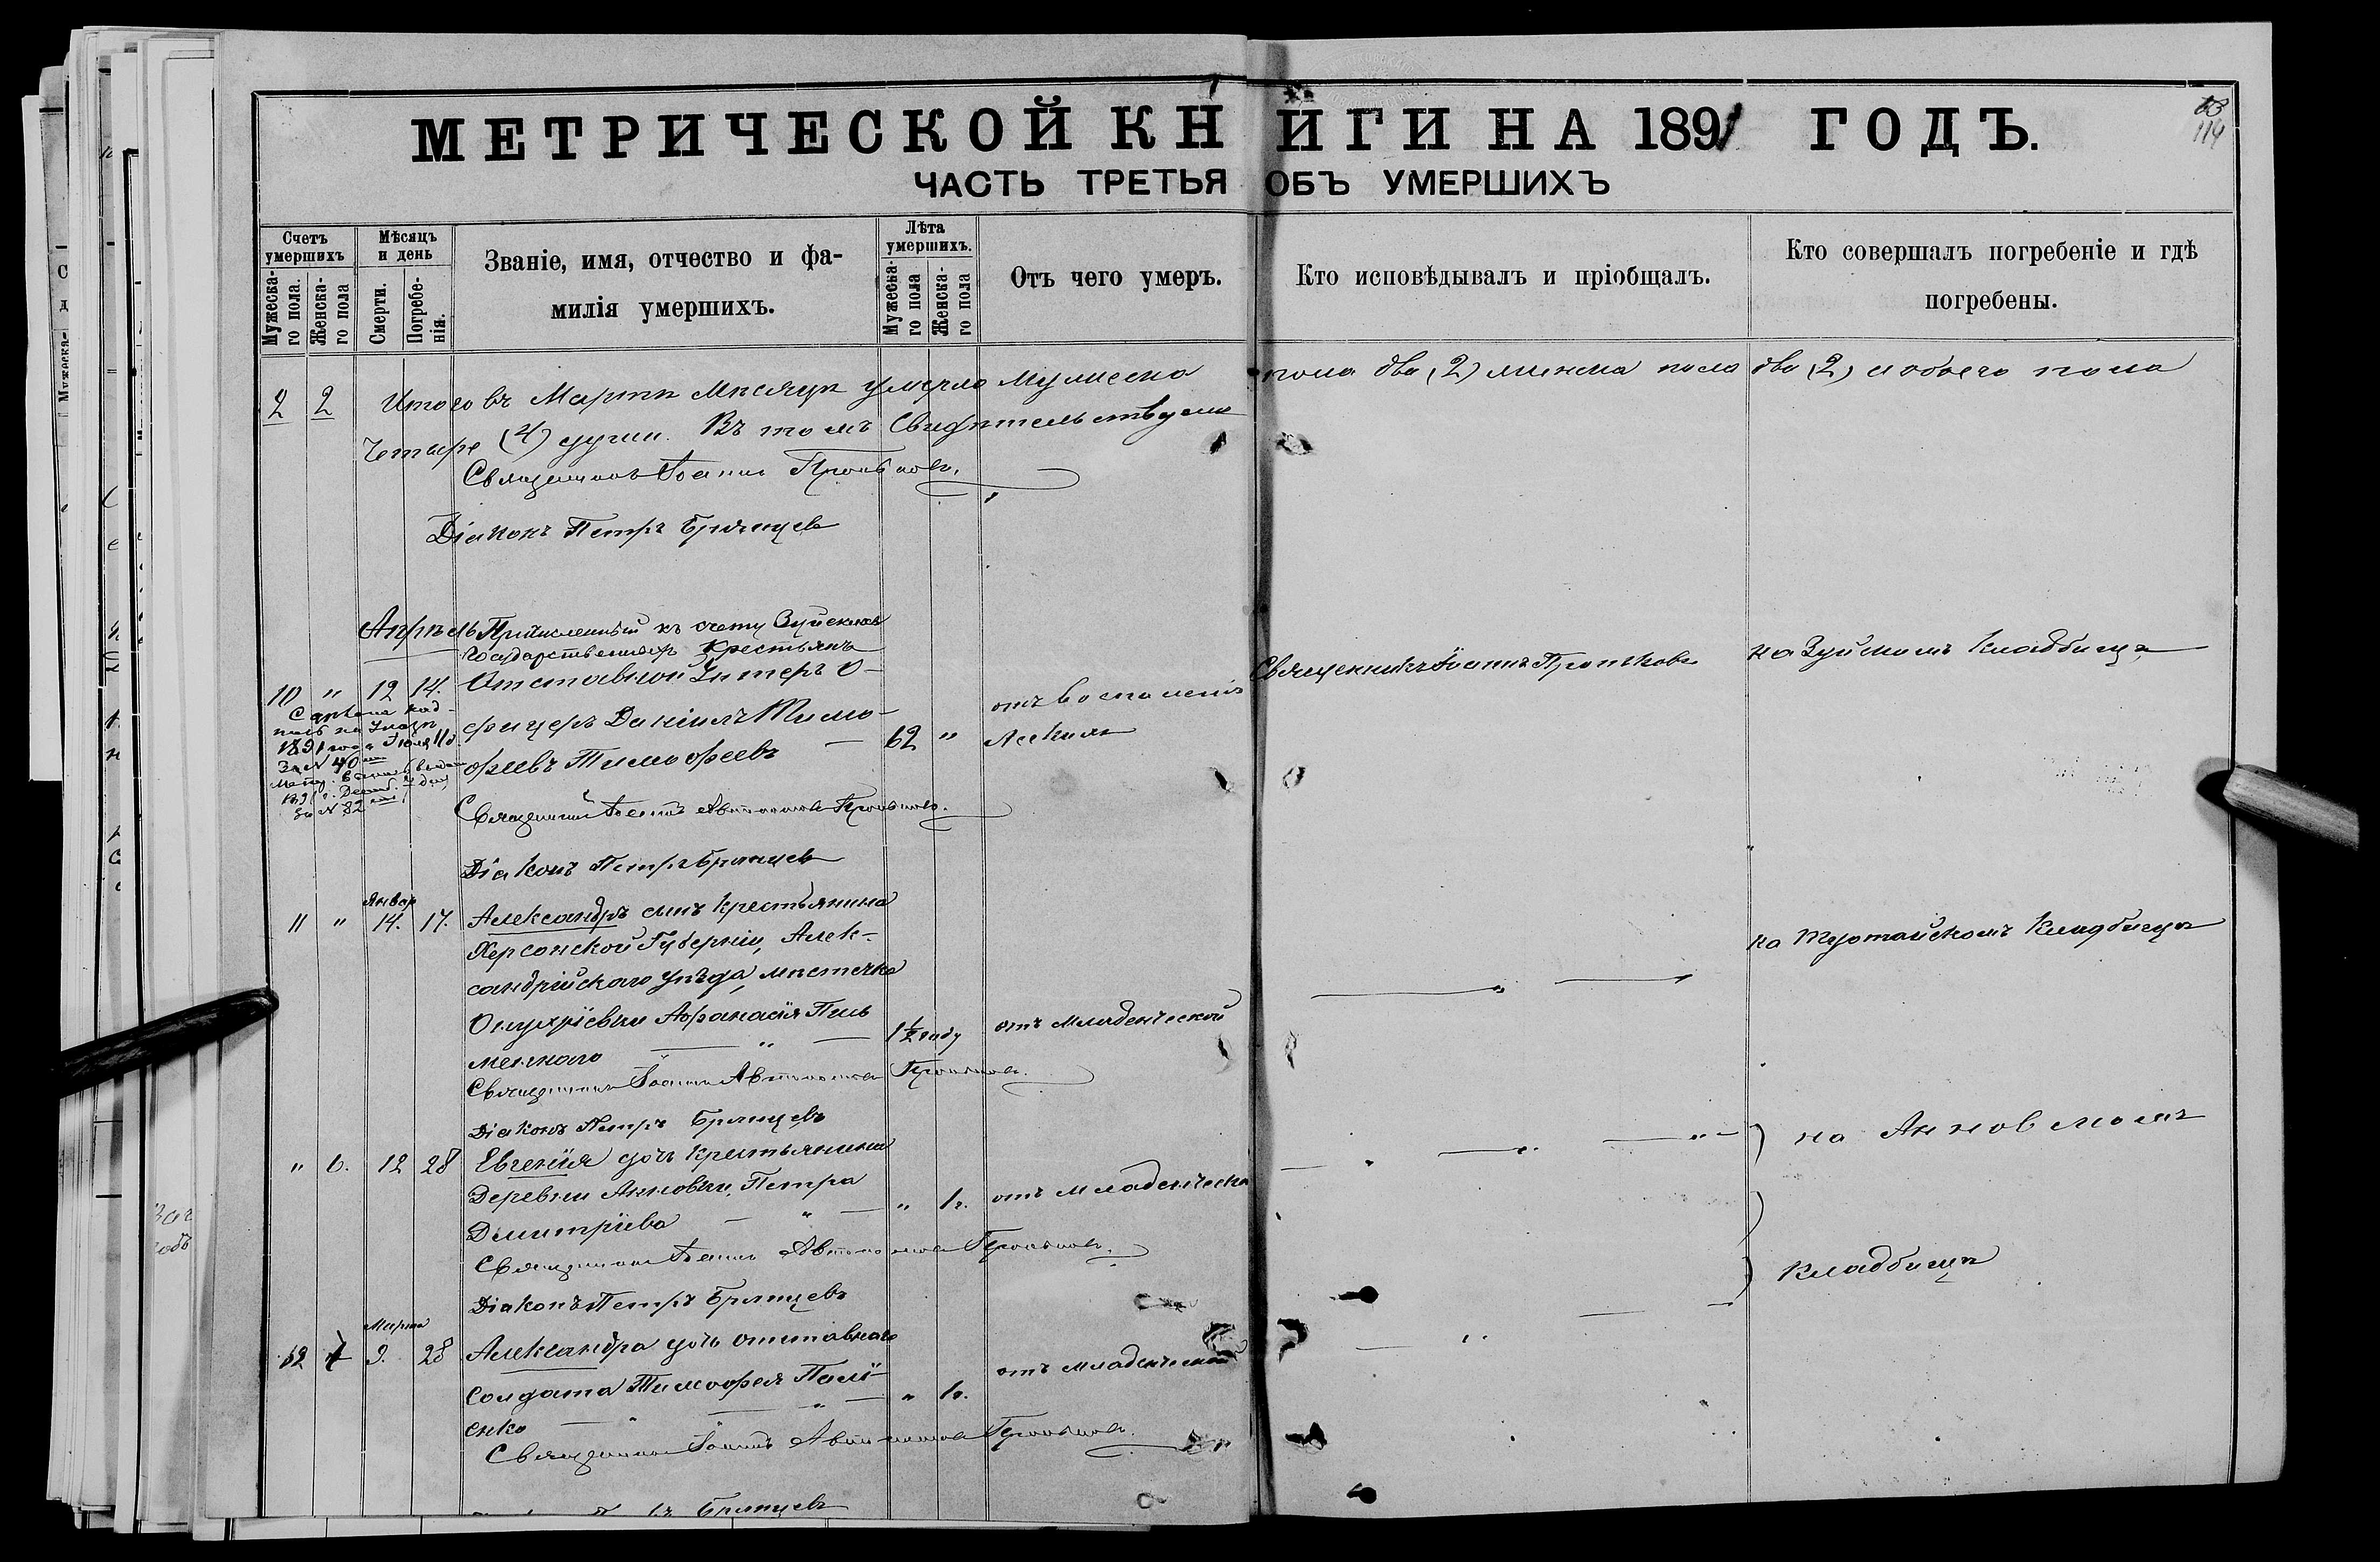 МЕТРИЧЕСКОЙ КНИГИ НА 1891 ГОДЪ.
114
ЧАСТЬ ТРЕТЬЯ ОБЪ УМЕРШИХЪ
Счетъ умершихъ
Мужеска-го пола.
Женска-го пола
Мѣсяцъ и день
Смерти.
Погребе-нія.
Званіе, имя, отчество и фа-
милія умершихъ.
Лѣта умершихъ.
Мужеска-го пола
Женска-го пола
Отъ чего умеръ.
Кто исповѣдывалъ и пріобщалъ.
Кто совершалъ погребеніе и гдѣ
погребены.
2 2 Итого въ Мартѣ Мѣсяцѣ умерло Мужеска пола два (2) женска пола два (2) и обоего пола
Четыре (4) души. Въ томъ Свидѣтельствуемъ
Священникъ Іоаннъ
Діаконъ Петръ Брянцевъ
Апрѣль Причисленный къ счету Зуйскихъ
Государственныхъ Крестьянъ
10 " 12 14. Отставной Унтеръ О-
фицеръ Даніилъ Тимо-
фѣевъ Тимофеевъ 62 "
отъ воспаленія
легкихъ
Священникъ Іоаннъ
на Зуйскомъ Кладбищѣ
1891 года Іюля
За N 40
За N 82
Священникъ Іоаннъ
Діаконъ Петръ Брянцевъ
Январ
11 " 14. 17. Александръ сынъ крестьянина
Херсонской Губерніи, Алек-
сандрійскаго уѣзда, мѣстечка
Онуфріевки Афанасія Пись
меннаго 1½ году отъ младенческой
на Кладбищѣ
Священникъ Іоаннъ
Діаконъ Петръ Брянцевъ
" 6. 12 28 Евгенія дочь крестьянина
Деревни Анновки, Петра
Дмитріева " 1г. отъ младенческой
на Анновскомъ
Кладбищѣ
Священникъ Іоаннъ
Діаконъ Петръ Брянцевъ
Марта
12 7 9. 28 Александра дочь отставнаго
солдата Тимофея Палі-
енко " 1г. отъ младенческой
Священникъ Іоаннъ
Брянцевъ